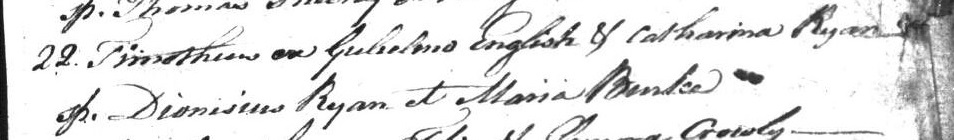 sp. Thomas
22. Timotheus ex Gulielmo English & Catharina Ryan
sp. Dionisius Ryan et Maria Burke
Crowly